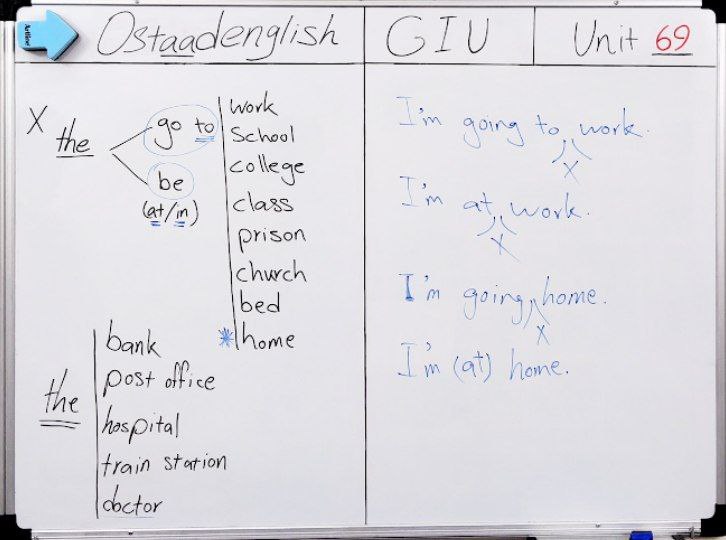 Ostaadenglish
GIU
Unit 69
X the
go to
be
(at/in)
work
School
college
class
prison
church
bed
*home
the
bank
post office
hospital
train station
doctor
I'm going to work.
X
I'm at work.
X
I'm going home.
X
I'm (at) home.